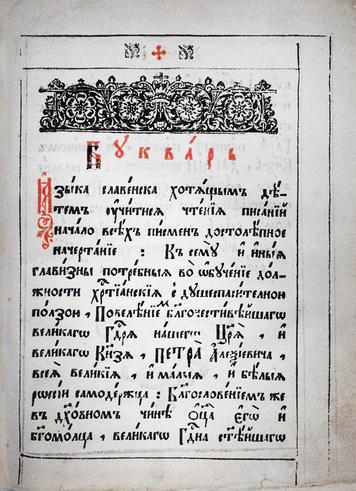 Бꙋква́рь
Ꙗ҆зы́ка славе́нска хотѧ́щымъ дѣ́-
темъ ᲂу҆чи́тисѧ чте́нїѧ писа́нїй
нача́ло всѣ́хъ пи́сменъ достолѣ́пное
начерта́нїе : Къ семꙋ̀ и҆ и҆ны́ѧ
глави̑зны потре́бныѧ во ѡ҆бꙋче́нїе до́л-
жности хрⷭ҇тїа́нскїѧ с̾ дꙋшеспаси́телною
по́лзою , Повелѣ́нїемъ бл҃гочести́вѣйшагѡ
вели́кагѡ Гдⷭ҇рѧ на́шегѡ Цр҃ѧ̀ , и҆
вели́кагѡ Кн҃зѧ , ПЕТРА̀ А҆леѯі́евича ,
всеѧ̀ вели́кїѧ , и҆ ма́лыѧ , и҆ бѣ́лыѧ
рѡссі́и самоде́ржца : Бл҃гослове́нїемъ же
въ дх҃о́вномъ чи́нѣ Ѻ҆ц҃а̀ є҆гѡ̀ и҆
бг҃омо́лца , вели́кагѡ Гдⷭ҇на ст҃ѣ́йшагѡ